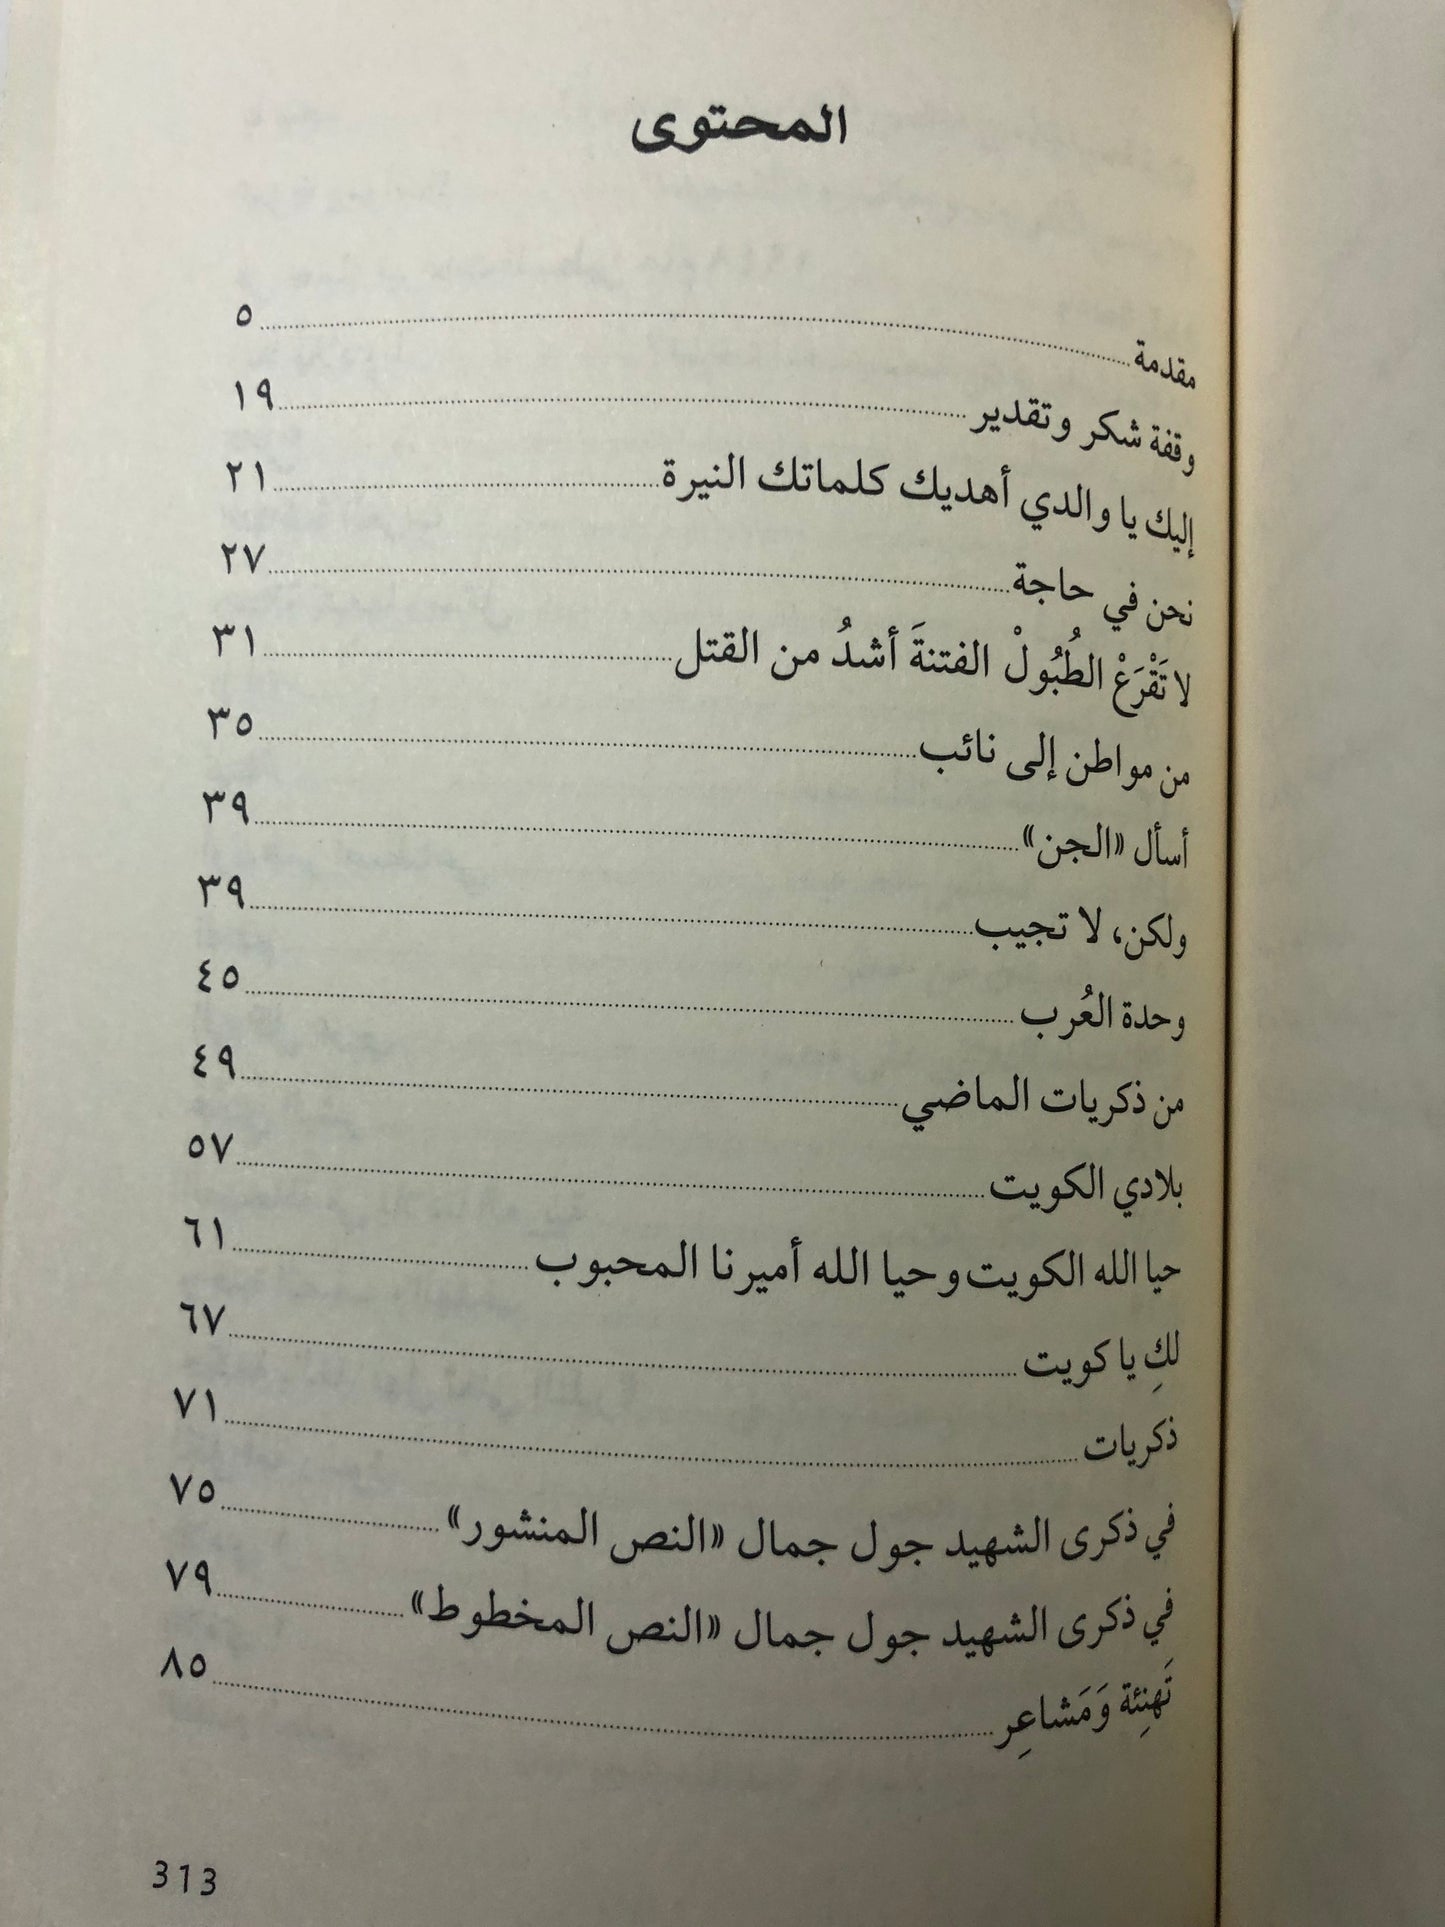 المحتوى
مقدمة ٥
وقفة شكر وتقدير ١٩
إليك يا والدي أهديك كلماتك النيرة ٢١
نحن في حاجة ٢٧
لا تَقْرَعْ الطُبُولْ الفتنةَ أشدُ من القتل ٣١
من مواطن إلى نائب ٣٥
أسأل «الجن» ٣٩
ولكن، لا تجيب ٣٩
وحدة العُرب ٤٥
من ذكريات الماضي ٤٩
بلادي الكويت ٥٧
حيا الله الكويت وحيا الله أميرنا المحبوب ٦١
لكِ يا كويت ٦٧
ذكريات ٧١
في ذكرى الشهيد جول جمال «النص المنشور» ٧٥
في ذكرى الشهيد جول جمال «النص المخطوط» ٧٩
تَهنِئة وَمَشاعِر ٨٥
313